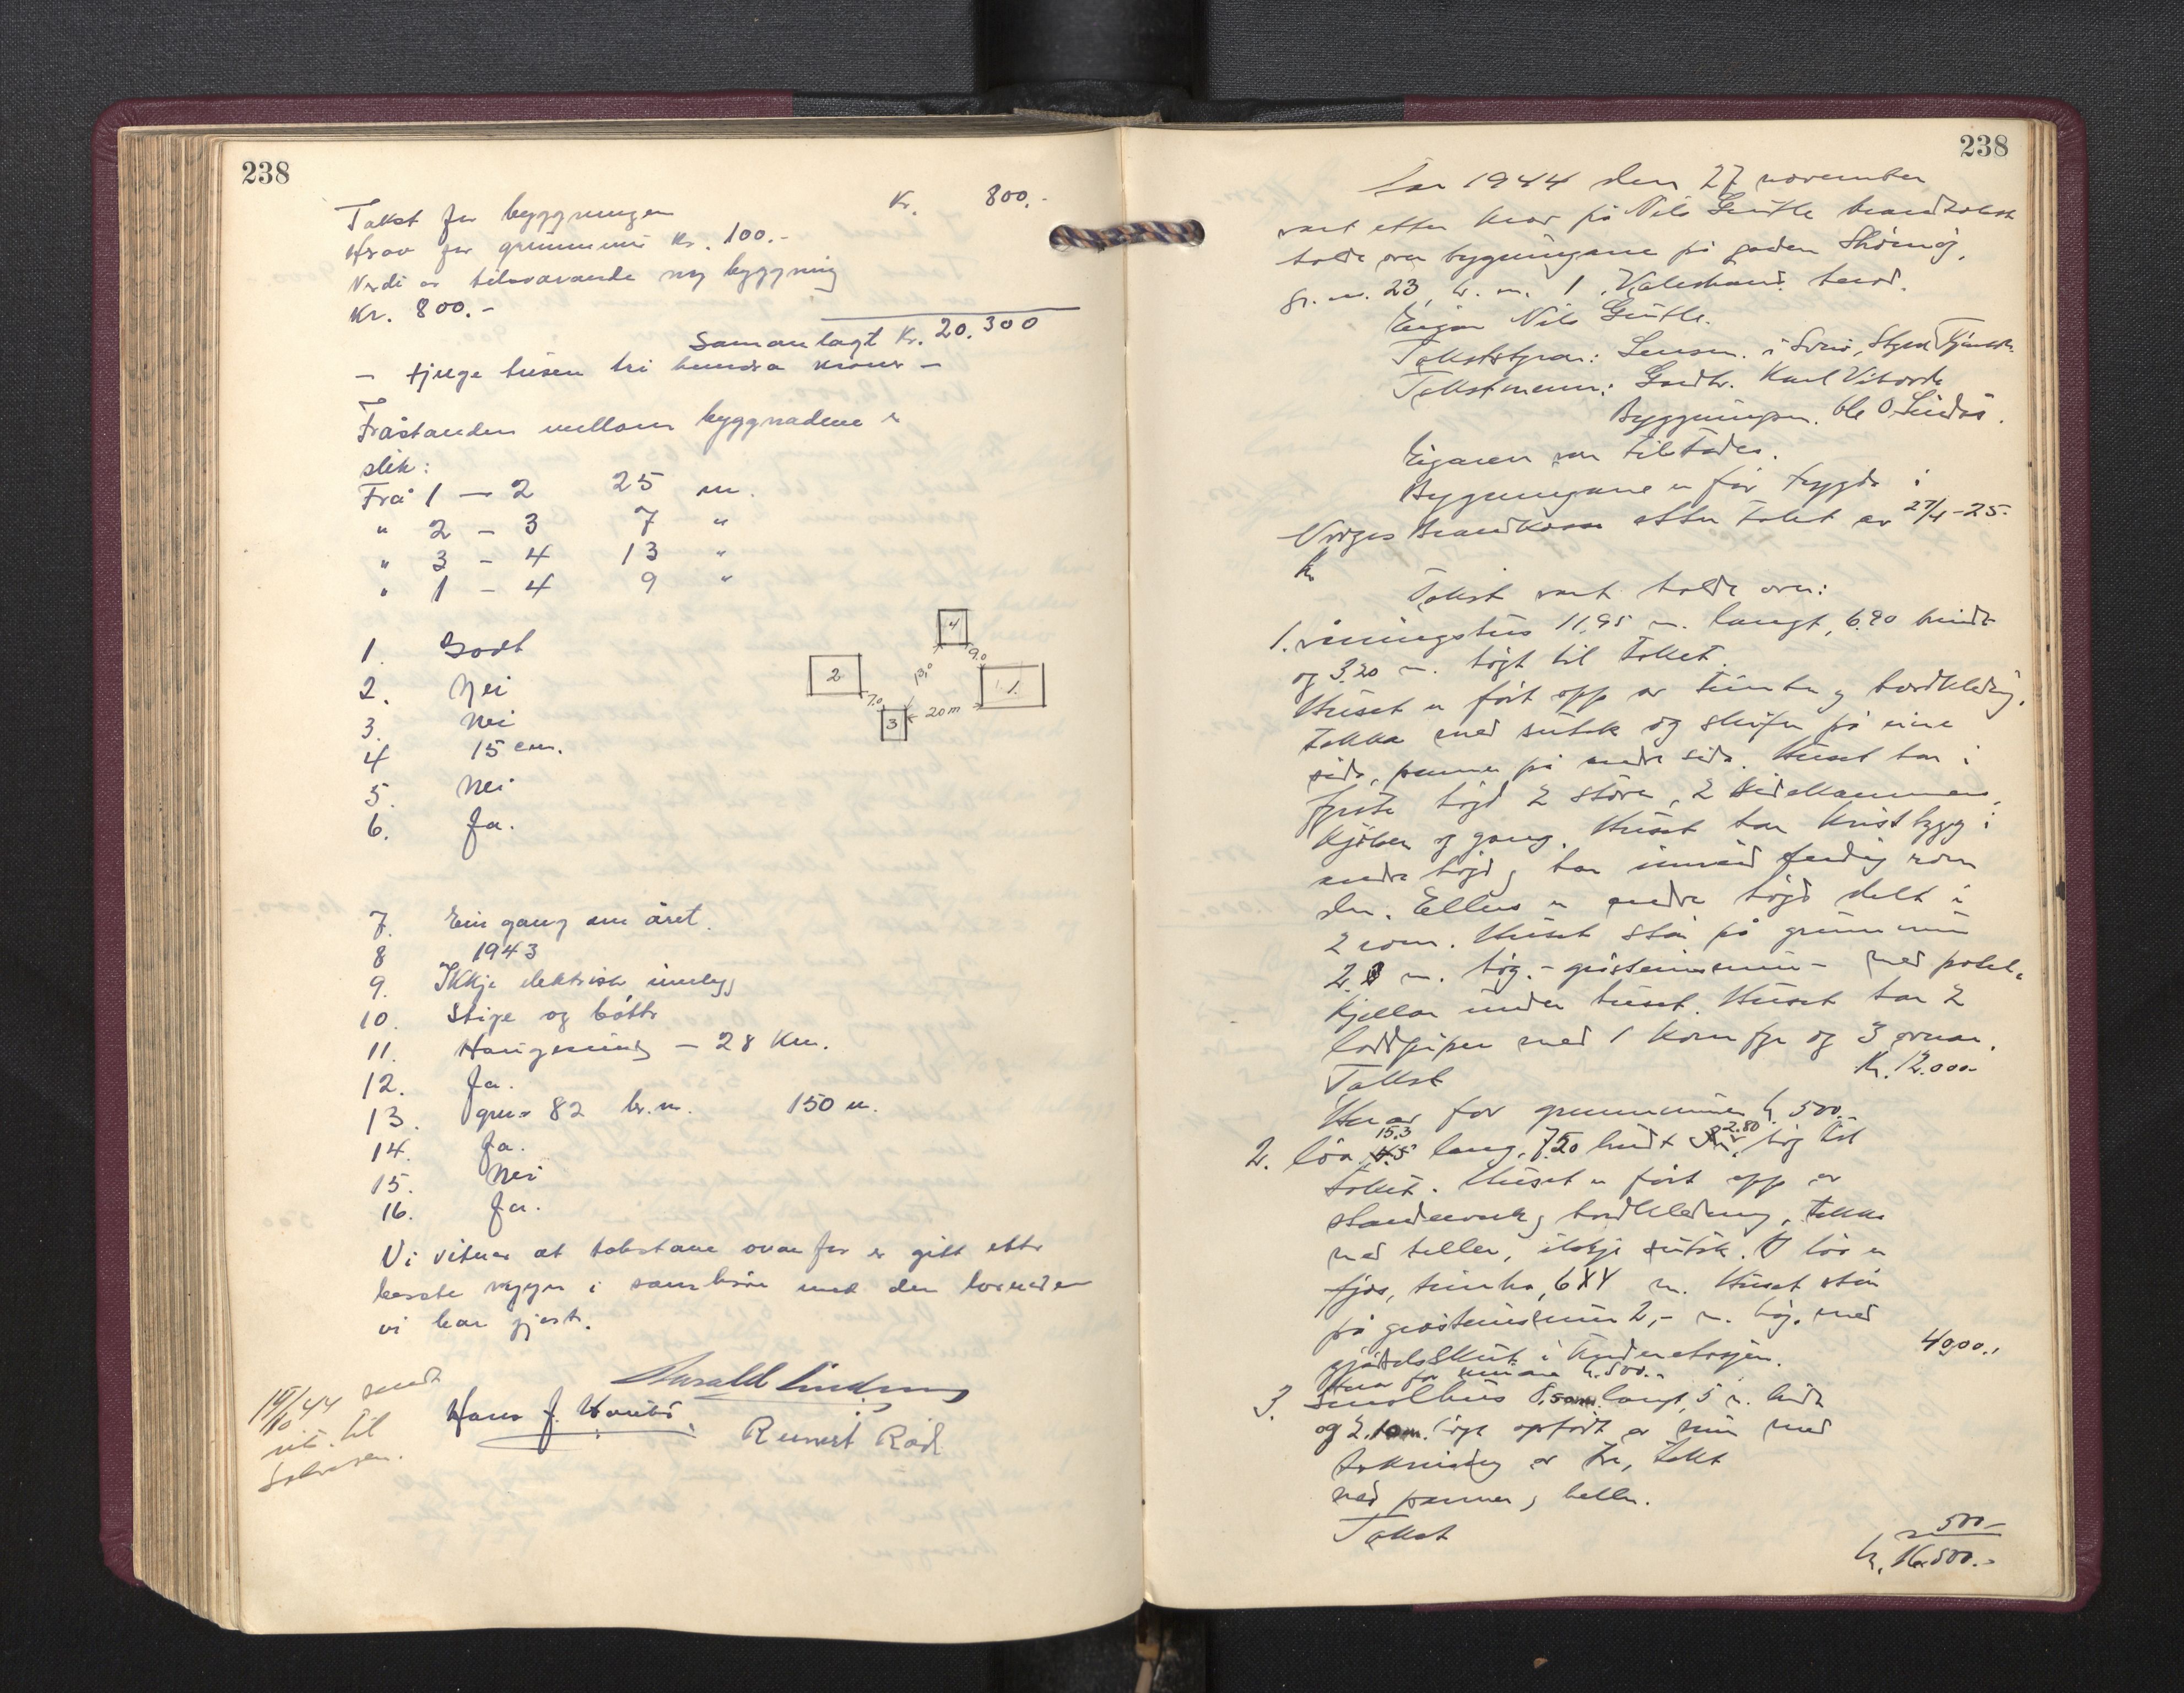 238
Takst for byggningen Kr. 800.-
Krav for grunnmur Kr. 100.-
Verdi av tilsvarande ny byggning
Kr. 800.-
Samanlagt Kr. 20.300
- tjuge tusen tri hundra kroner -
Fråstanden mellom byggnadene er
slik:
Frå 1 - 2 25 m.
" 2 - 3 7 "
" 3 - 4 13 "
" 1 - 4 9 "
4
2
1.
3
9.0
13.0
7.0
20 m
1. Godt
2. Nei
3. Nei
4 15 cm.
5. Nei
6. Ja.
7. Ein gang um året.
8 1943
9. Ikkje elektrisk innlegg
10. Stige og bøtte
11. Haugesund - 28 Km.
12. Ja.
13. gnr. 82 br.n. 150 m.
14. Ja.
15. Nei
16. Ja.
Vi vitner at takstane ovanfor er gitt etter
beste skjøn i samhøve med den
vi har gjort.
Harald
Hans J.
19/10 44 sendt
til
238
År 1944 den 27 november
vart etter krav på Nils brandtakst
halde over bygningane på garden
gr. nr. 23, br. nr. 1. Valestrand herad.
Eigar Nils
Takststyrar: Lensm. i Sveio,
Takstmenn: Gardbr. Karl
Byggningsm. Ole O.
Eigaren var tilstades.
Bygningane er før trygda i
Norges Brandkasse etter takst av 27/4-25.
Kr
Takst vart halde over:
1. våningshus 11,95 m. langt, 6.90 breidt
og 3.20 m. høgt til taket.
Huset er ført opp av timber og bordkledning,
takka med sutak og skifer på eine
side, panner på andre sida. Huset har i
fyrste høgd 2 stover, 2 sidekammers,
kjøken og gang. Huset har kvistbygg i
andre høgd, har innreid ferdig rom
der. Ellers er andre høgd delt i
2 rom. Huset står på grunnmur
2. m. høg - gråsteinsmur - med
kjellar under huset. Huset har 2
piper med 1 komfyr og 3 omnar.
Takst Kr. 12.000-
Krav for grunnmuren kr 500.-
2. løa 15.3 lang, 7.50 breidt 2.80 høg til
taket. Huset er ført opp av
standerverk, bordkledning, takka
med heller, ikkje sutak. I løa er
fjøs, timbra, 6 x 4 m. Huset står
på gråsteinsmur 2,- m. høg. med
i underetasjen. 4000.,
Krav for murane kr. 500.-
3. Smalhus 8,50 m. langt, 5 m. breidt
og 2.10 m. høgt oppført av mur med
av tre, tekt
med panner, heller.
Takst 500-
kr. 16.500.-